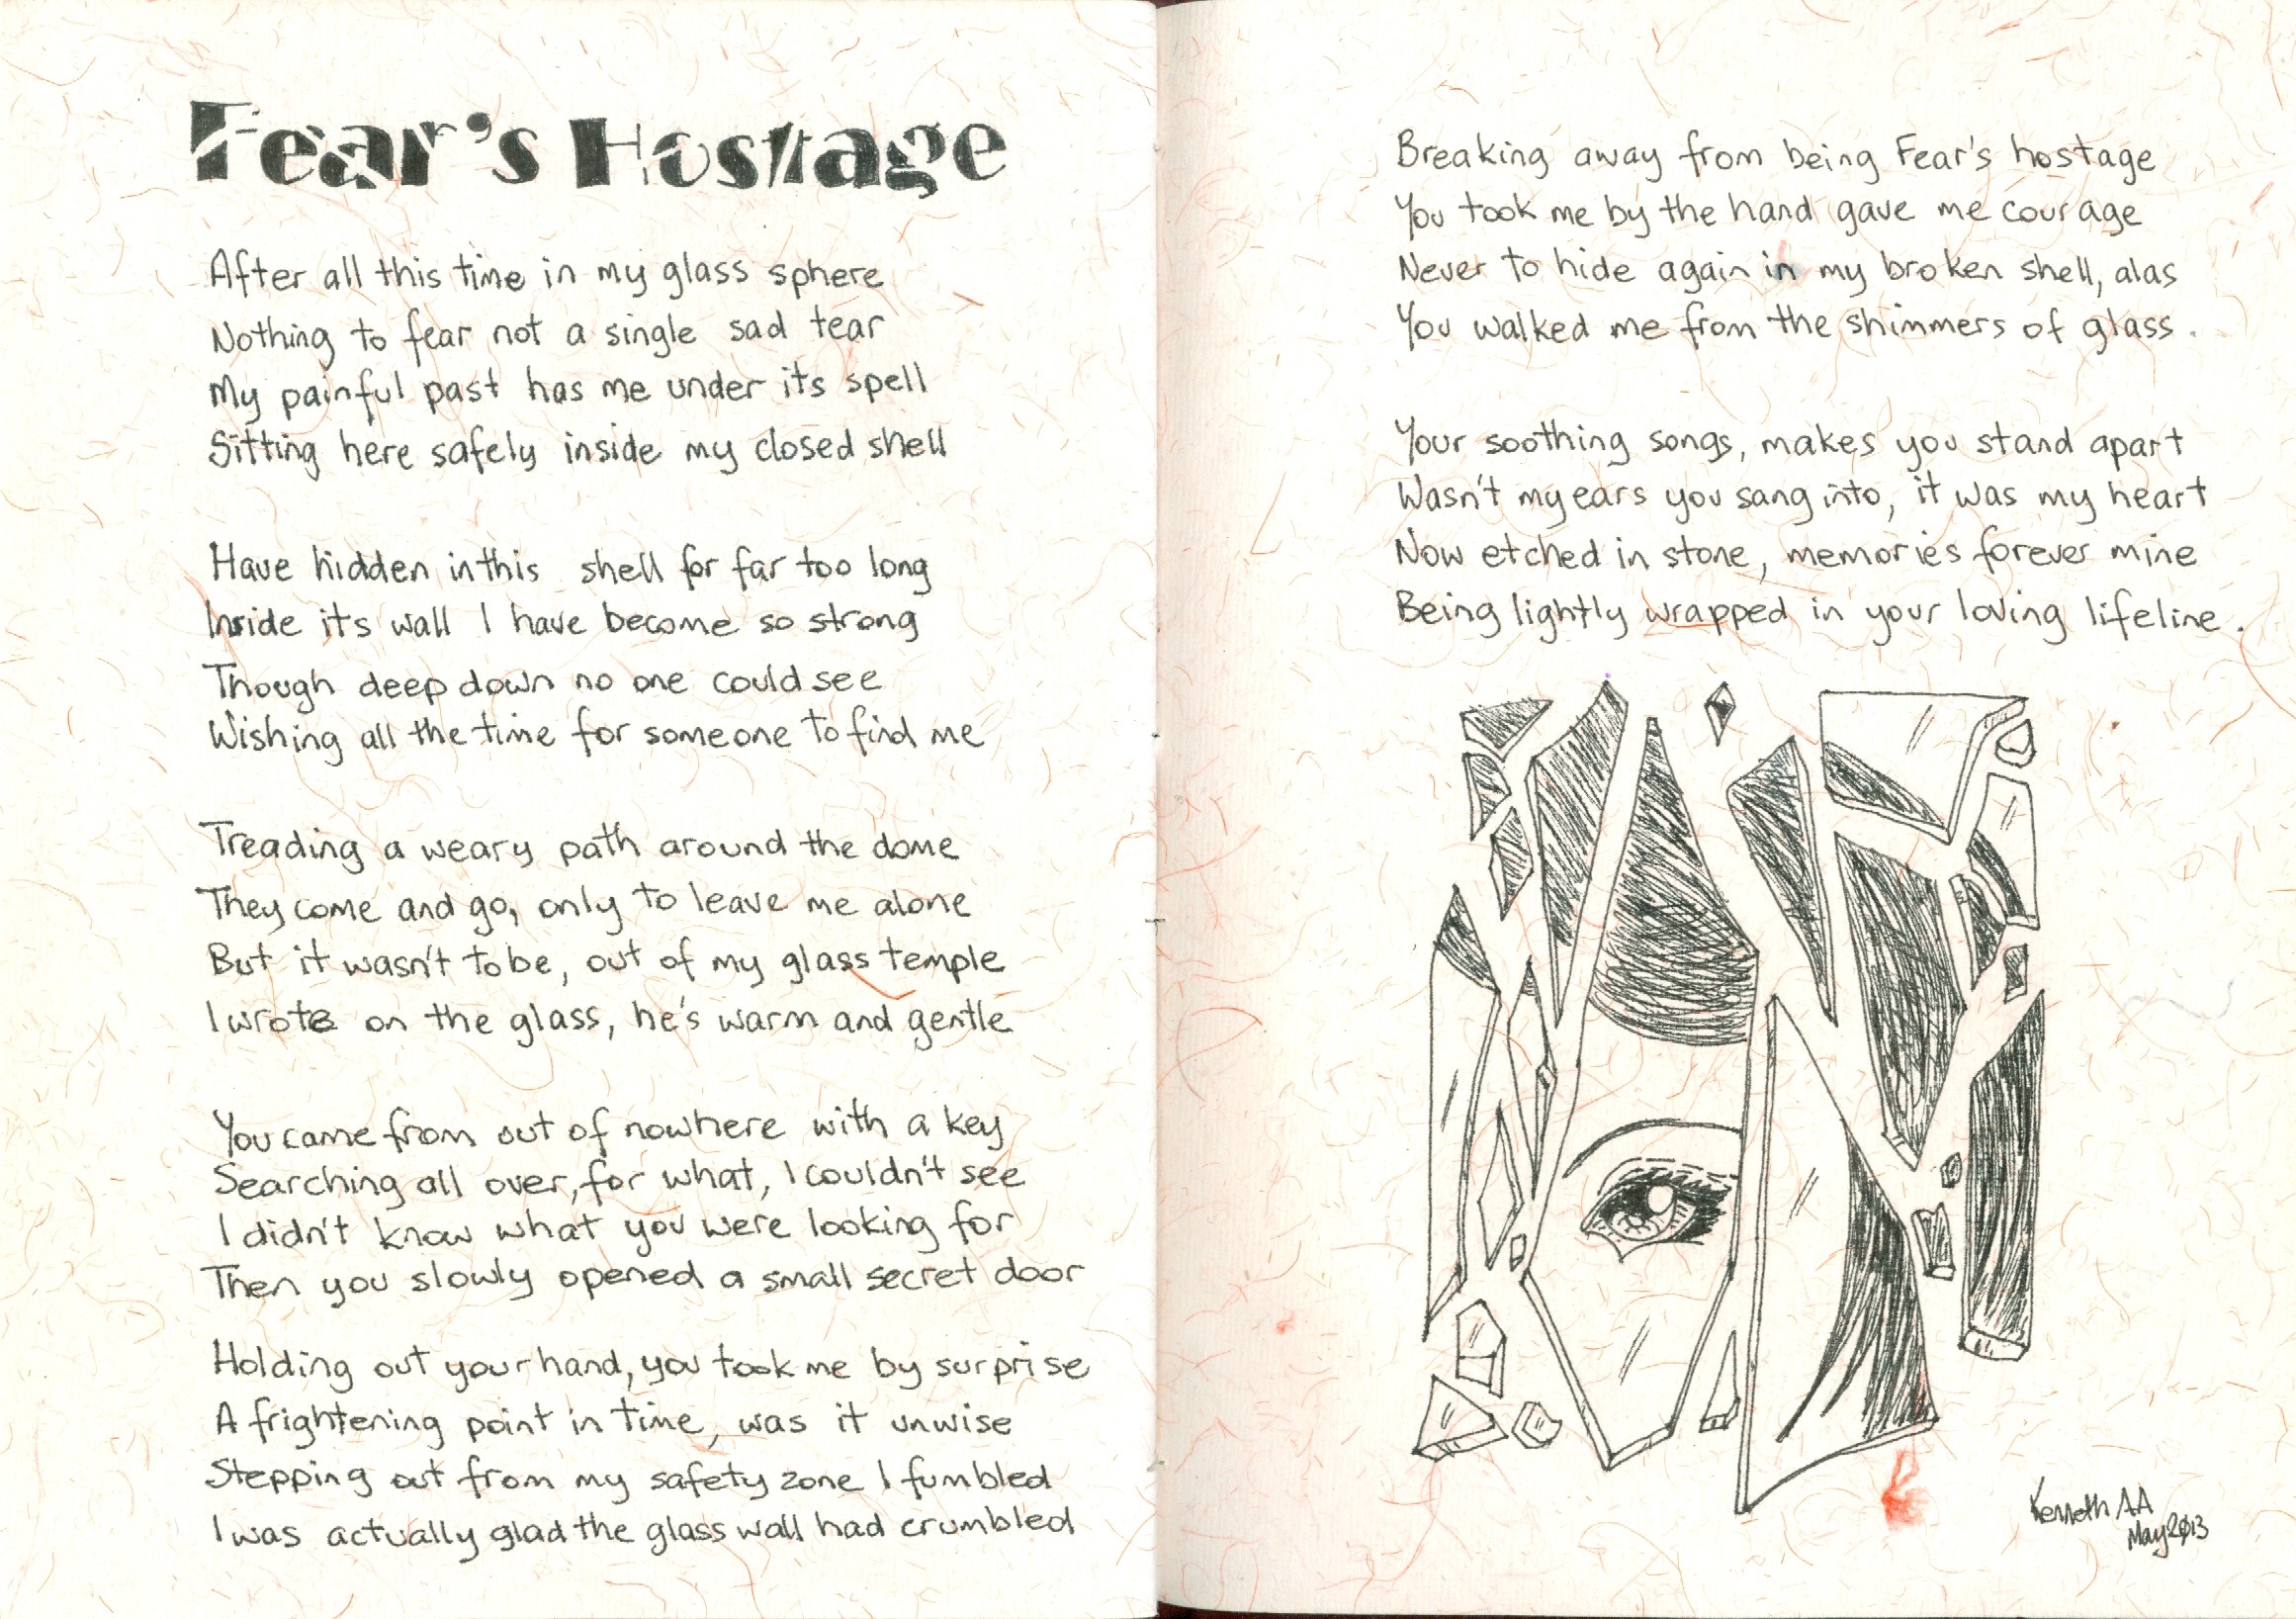 Fear's Hostage
After all this time in my glass sphere
Nothing to fear not a single sad tear
My painful past has me under its spell
Sitting here safely inside my closed shell
Have hidden in this shell for far too long
Inside it's wall I have become so strong
Though deep down no one could see
Wishing all the time for someone to find me
Treading a weary path around the dome
They come and go, only to leave me alone
But it wasn't to be, out of my glass temple
I wrote on the glass, he's warm and gentle
You came from out of nowhere with a key
Searching all over, for what, I couldn't see
I didn't know what you were looking for
Then you slowly opened a small secret door
Holding out your hand, you took me by surprise
A frightening point in time, was it unwise
Stepping out from my safety zone I fumbled
I was actually glad the glass wall had crumbled
Breaking away from being Fear's hostage
You took me by the hand gave me courage
Never to hide again in my broken shell, alas
You walked me from the shimmers of glass.
Your soothing songs, makes you stand apart
Wasn't my ears you sang into, it was my heart
Now etched in stone, memories forever mine
Being lightly wrapped in your loving lifeline.
Kenneth AA
May 2013